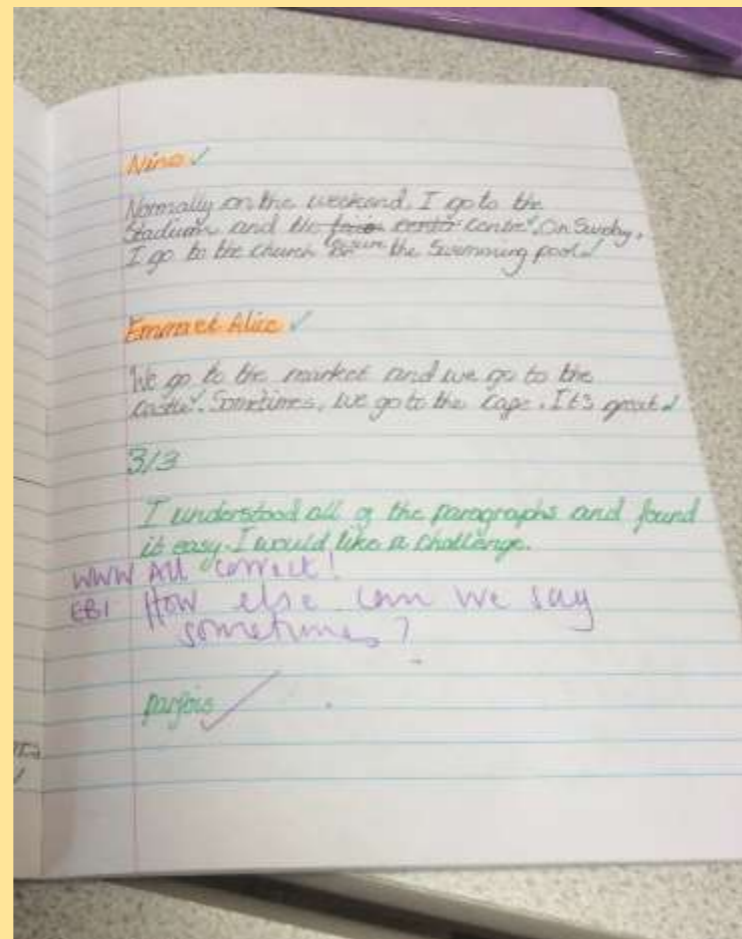 Nino ✓
Normally on the weekend, I go to the
Stadium and the centre ✓. On Sunday,
I go to the church or the swimming pool ✓
Emma et Alice ✓
We go to the market and we go to the
castle ✓. Sometimes, we go to the cape. It's great ✓
3/3
I understood all of the paragraphs and found
it easy. I would like a challenge.
WWW All correct!
EBI How else can we say
sometimes?
parfois ✓